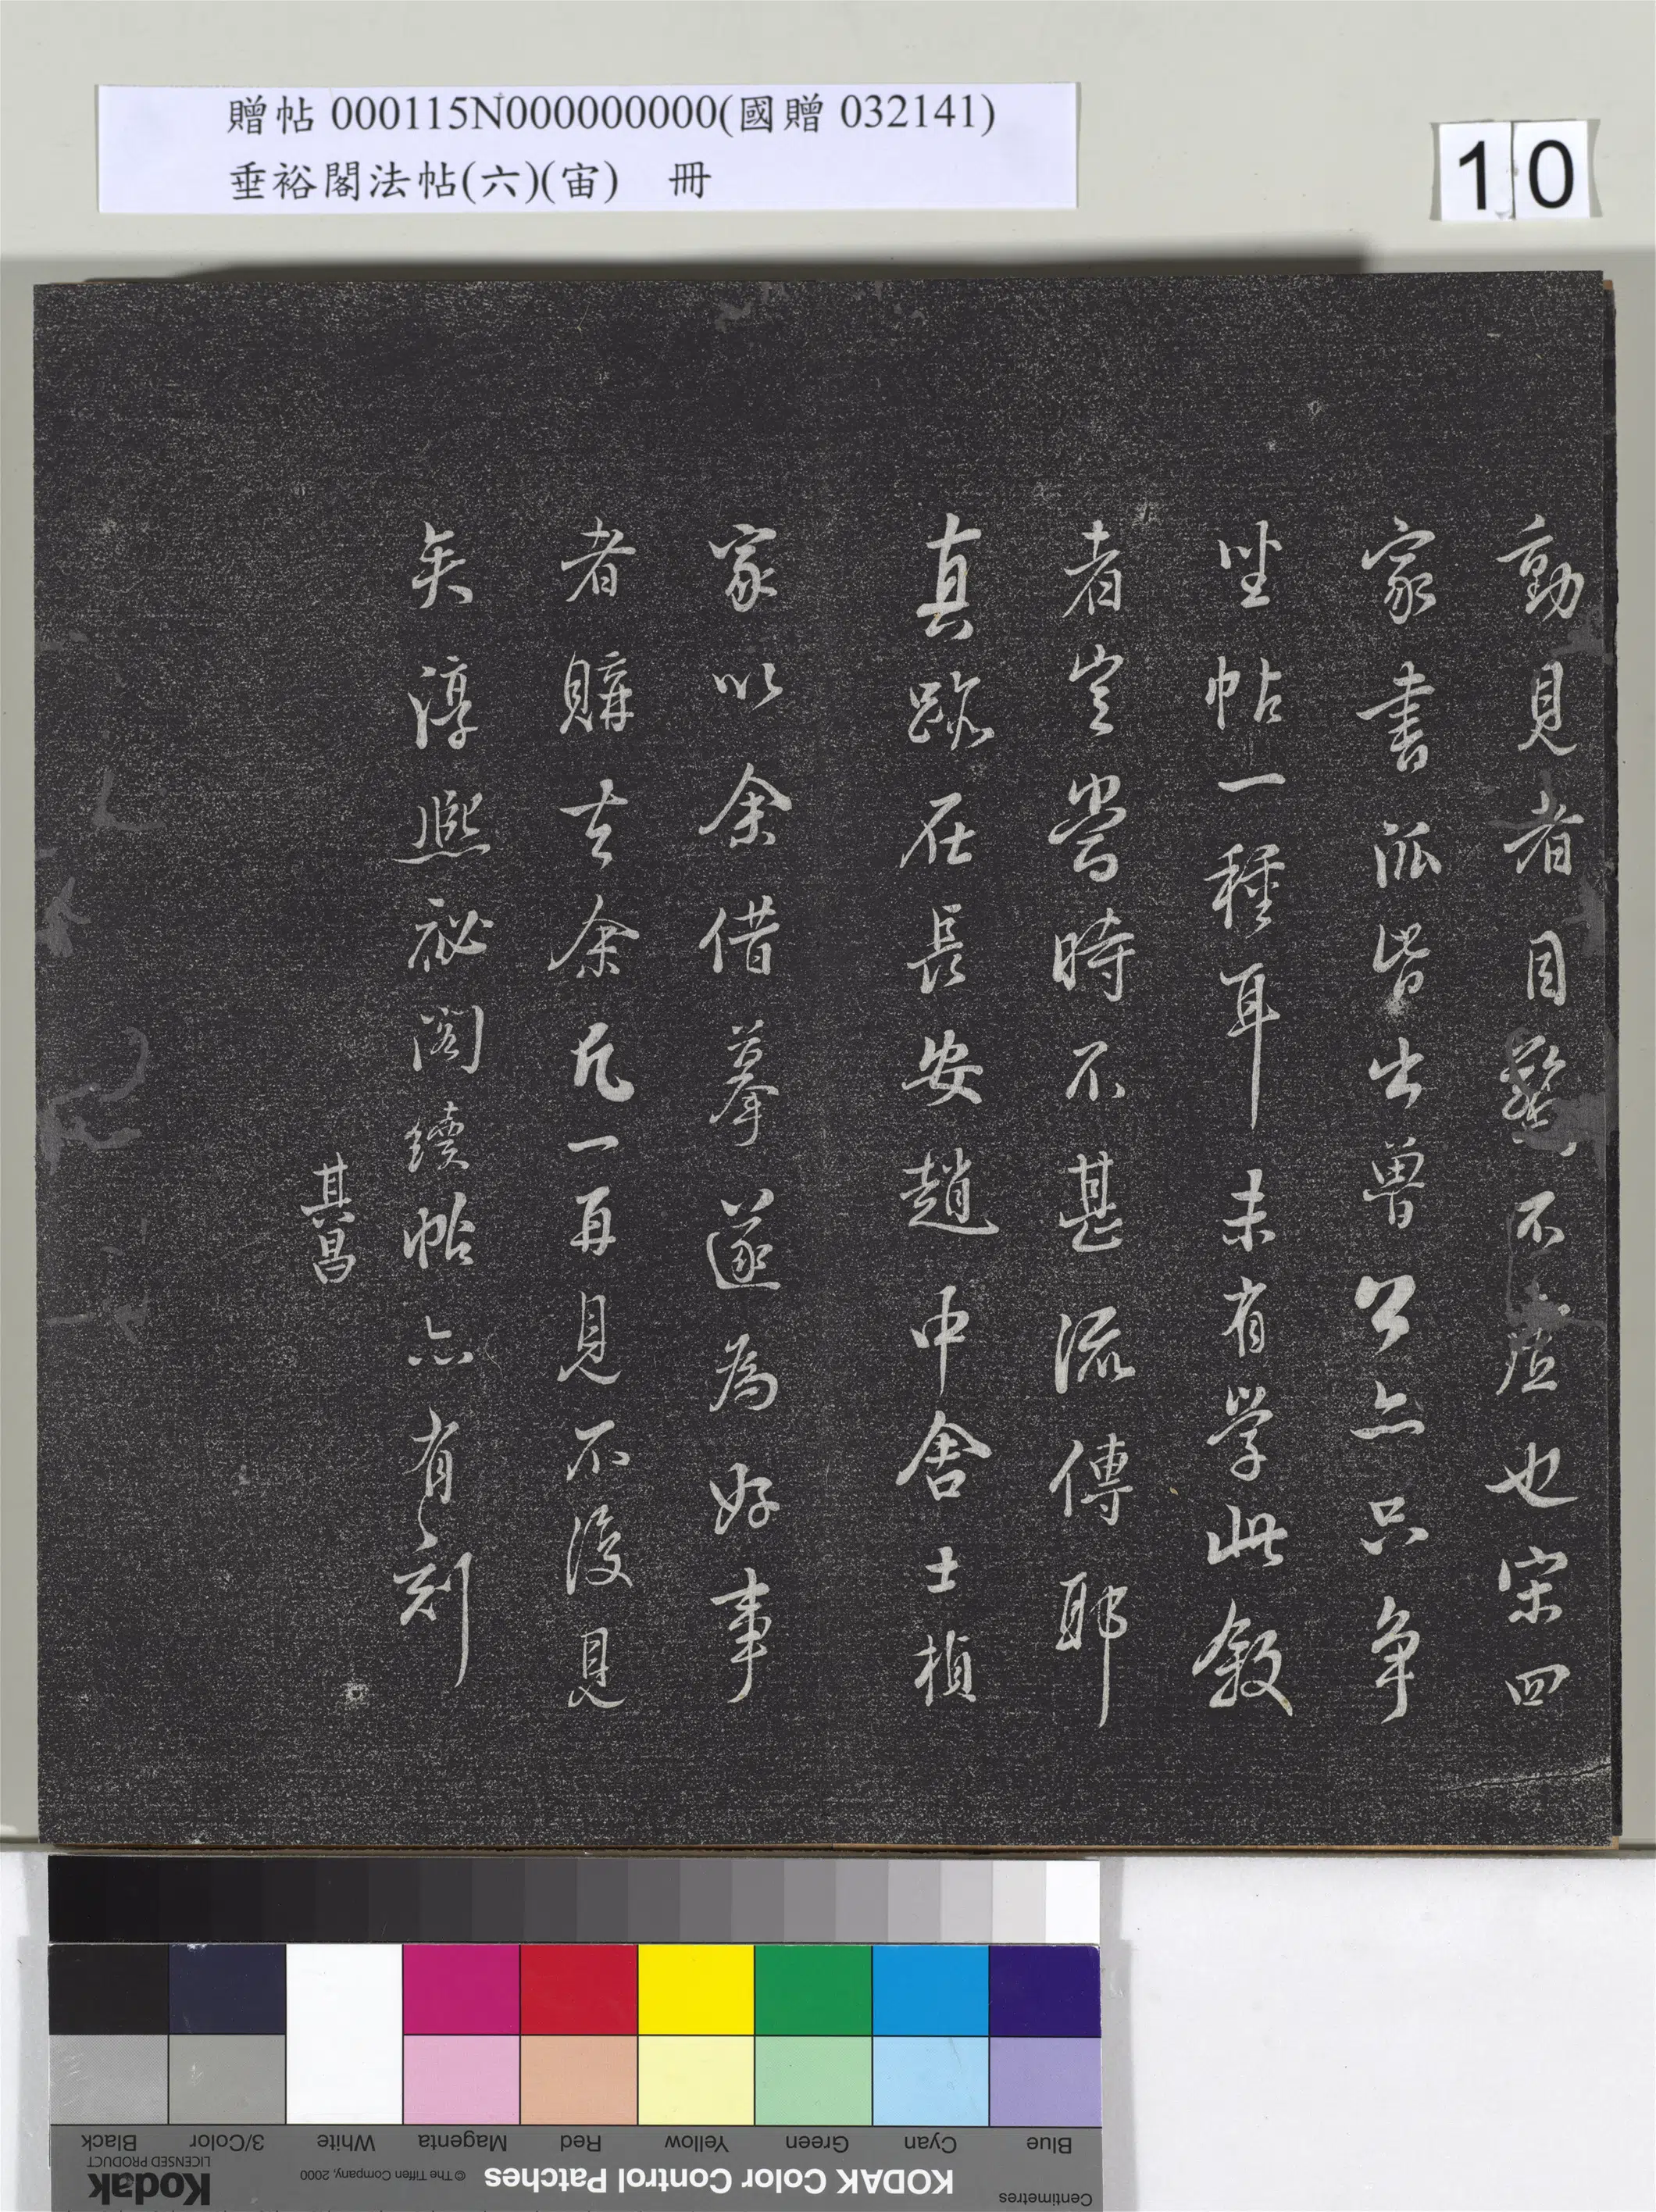 贈帖 000115N000000000(國贈 032141)
垂裕閣法帖(六)(宙) 冊
10
動見者目驚不虛也宋四
家書派皆出魯公亦只争
坐帖一種耳未有學此敘
者豈當時不甚流傳耶
真跡在長安趙中舍士楨
家以余借摹遂為好事
者購去余凡一再見不復見
矣淳熙祕閣續帖亦有刻
其昌
Black
3/Color
White
Magenta
Red
Yellow
Green
Cyan
Blue
Kodak
LICENSED PRODUCT
© The Tiffen Company, 2000
KODAK Color Control Patches
Centimetres